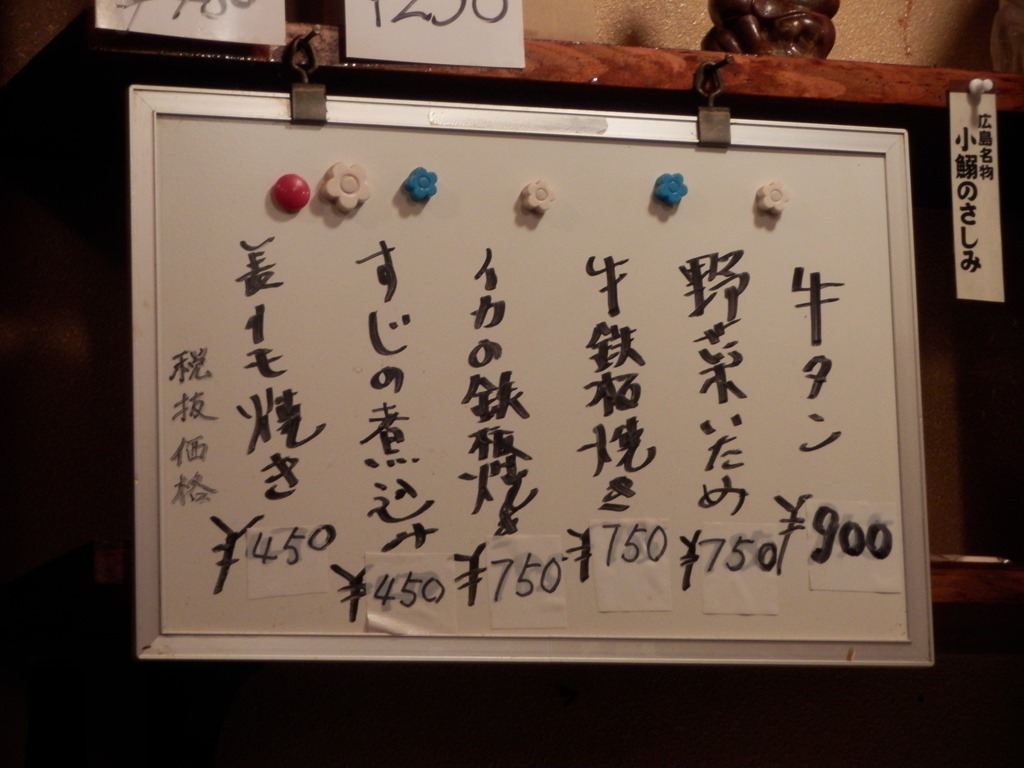 牛タン ¥900
野菜いため ¥750
牛鉄板焼き ¥750
イカの鉄板焼き ¥750
すじの煮込み ¥450
長イモ焼き ¥450
税抜価格
広島名物
小鰯のさしみ